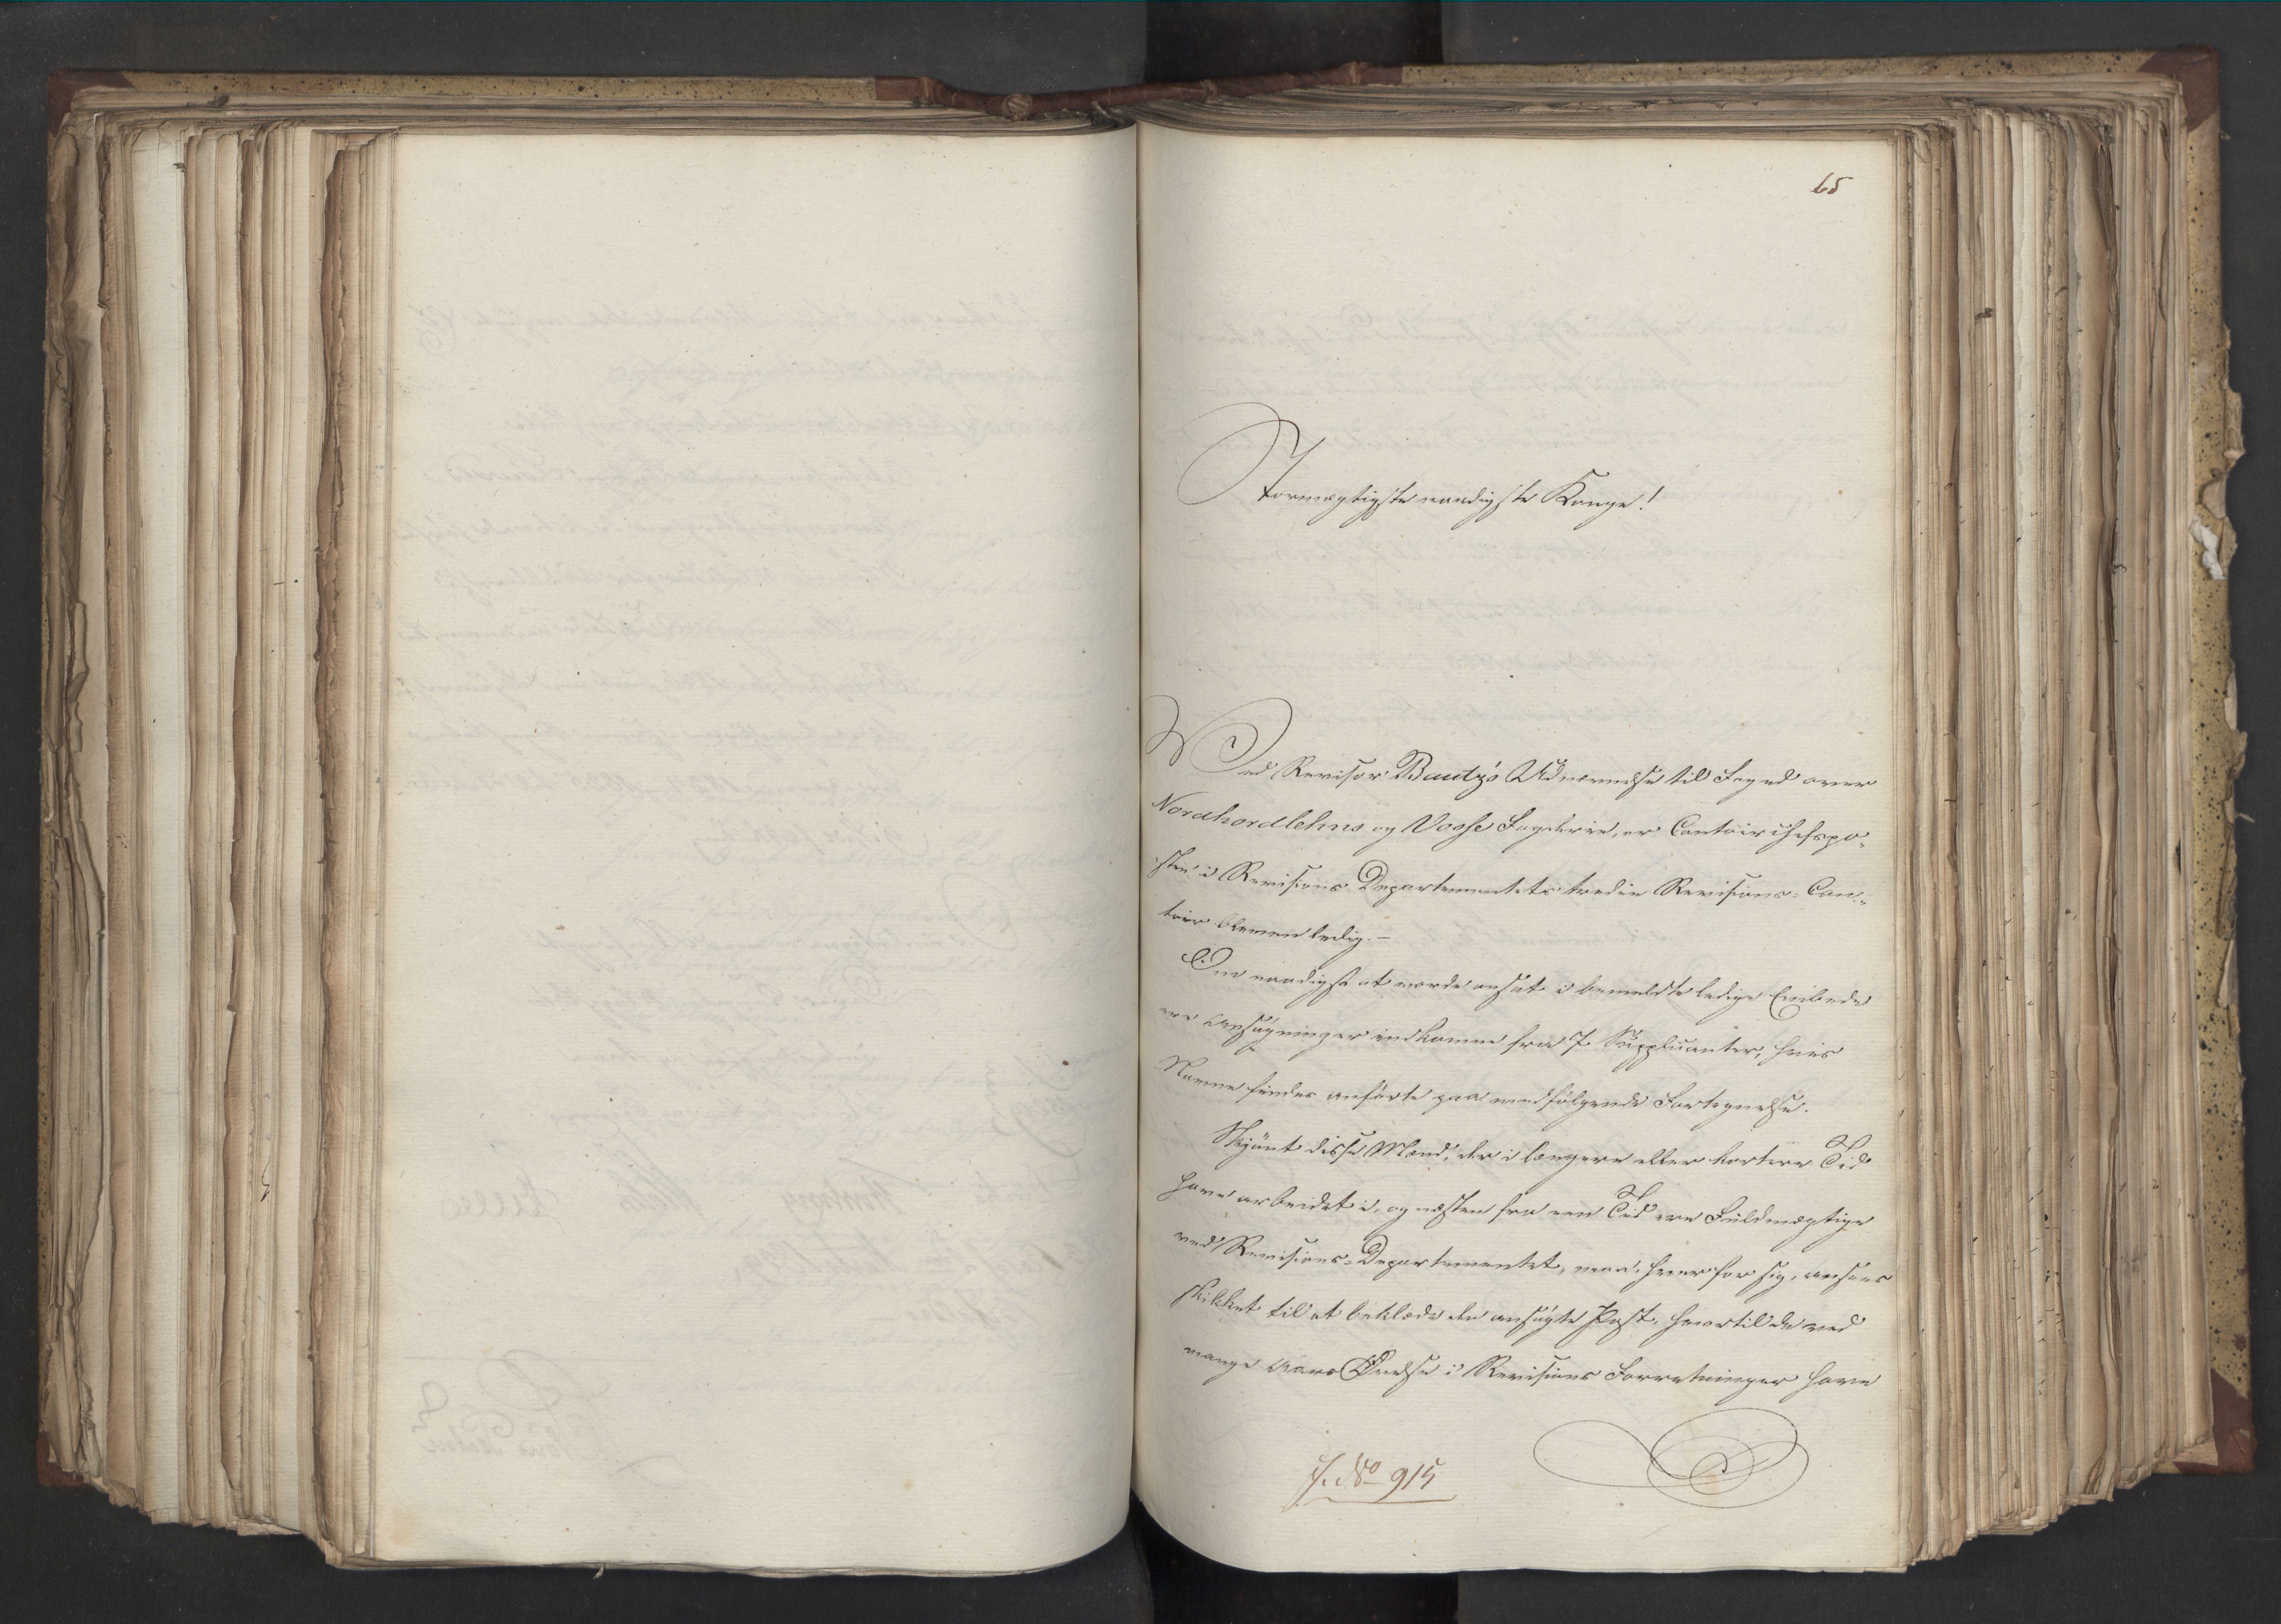 65
Stormægtigste naadigste Konge!
Ved Revisor Bautz's Udnævnelse til Foged over
Nordhordlehns og Vosse Fogderie, er Contoirchefspo-
sten i Revisions Departementets tredie Revisions-Con-
toir bleven ledig.-
Om naadigst at vorde ansat i bemeldte ledige Embede
ere Ansøgninger indkomne fra 7 Supplicanter, hvis
Navne findes anførte paa medfølgende Fortegnelse.
Skjønt disse Mænd, der i længere eller kortere Tid
have arbeidet i, og næsten fra een Tid ere Fuldmægtige
ved Revisions-Departementet, maa, hver for sig, ansees
skikket til at beklæde den ansøgte Post, hvortil de ved
mange Aars Øvelse i Revisions Forretninger have
J. No 915